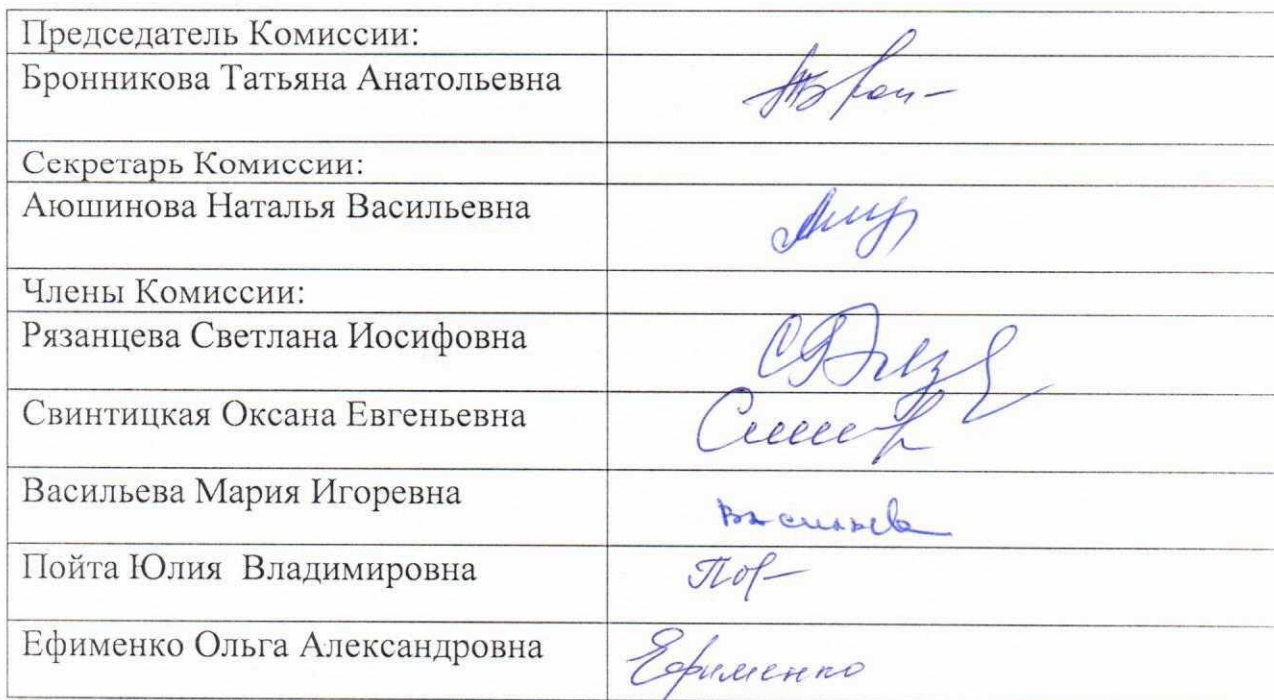 Председатель Комиссии:
Бронникова Татьяна Анатольевна
Секретарь Комиссии:
Аюшинова Наталья Васильевна
Члены Комиссии:
Рязанцева Светлана Иосифовна
Свинтицкая Оксана Евгеньевна
Васильева Мария Игоревна
Васильева
Пойта Юлия Владимировна
Ефименко Ольга Александровна
Ефименко